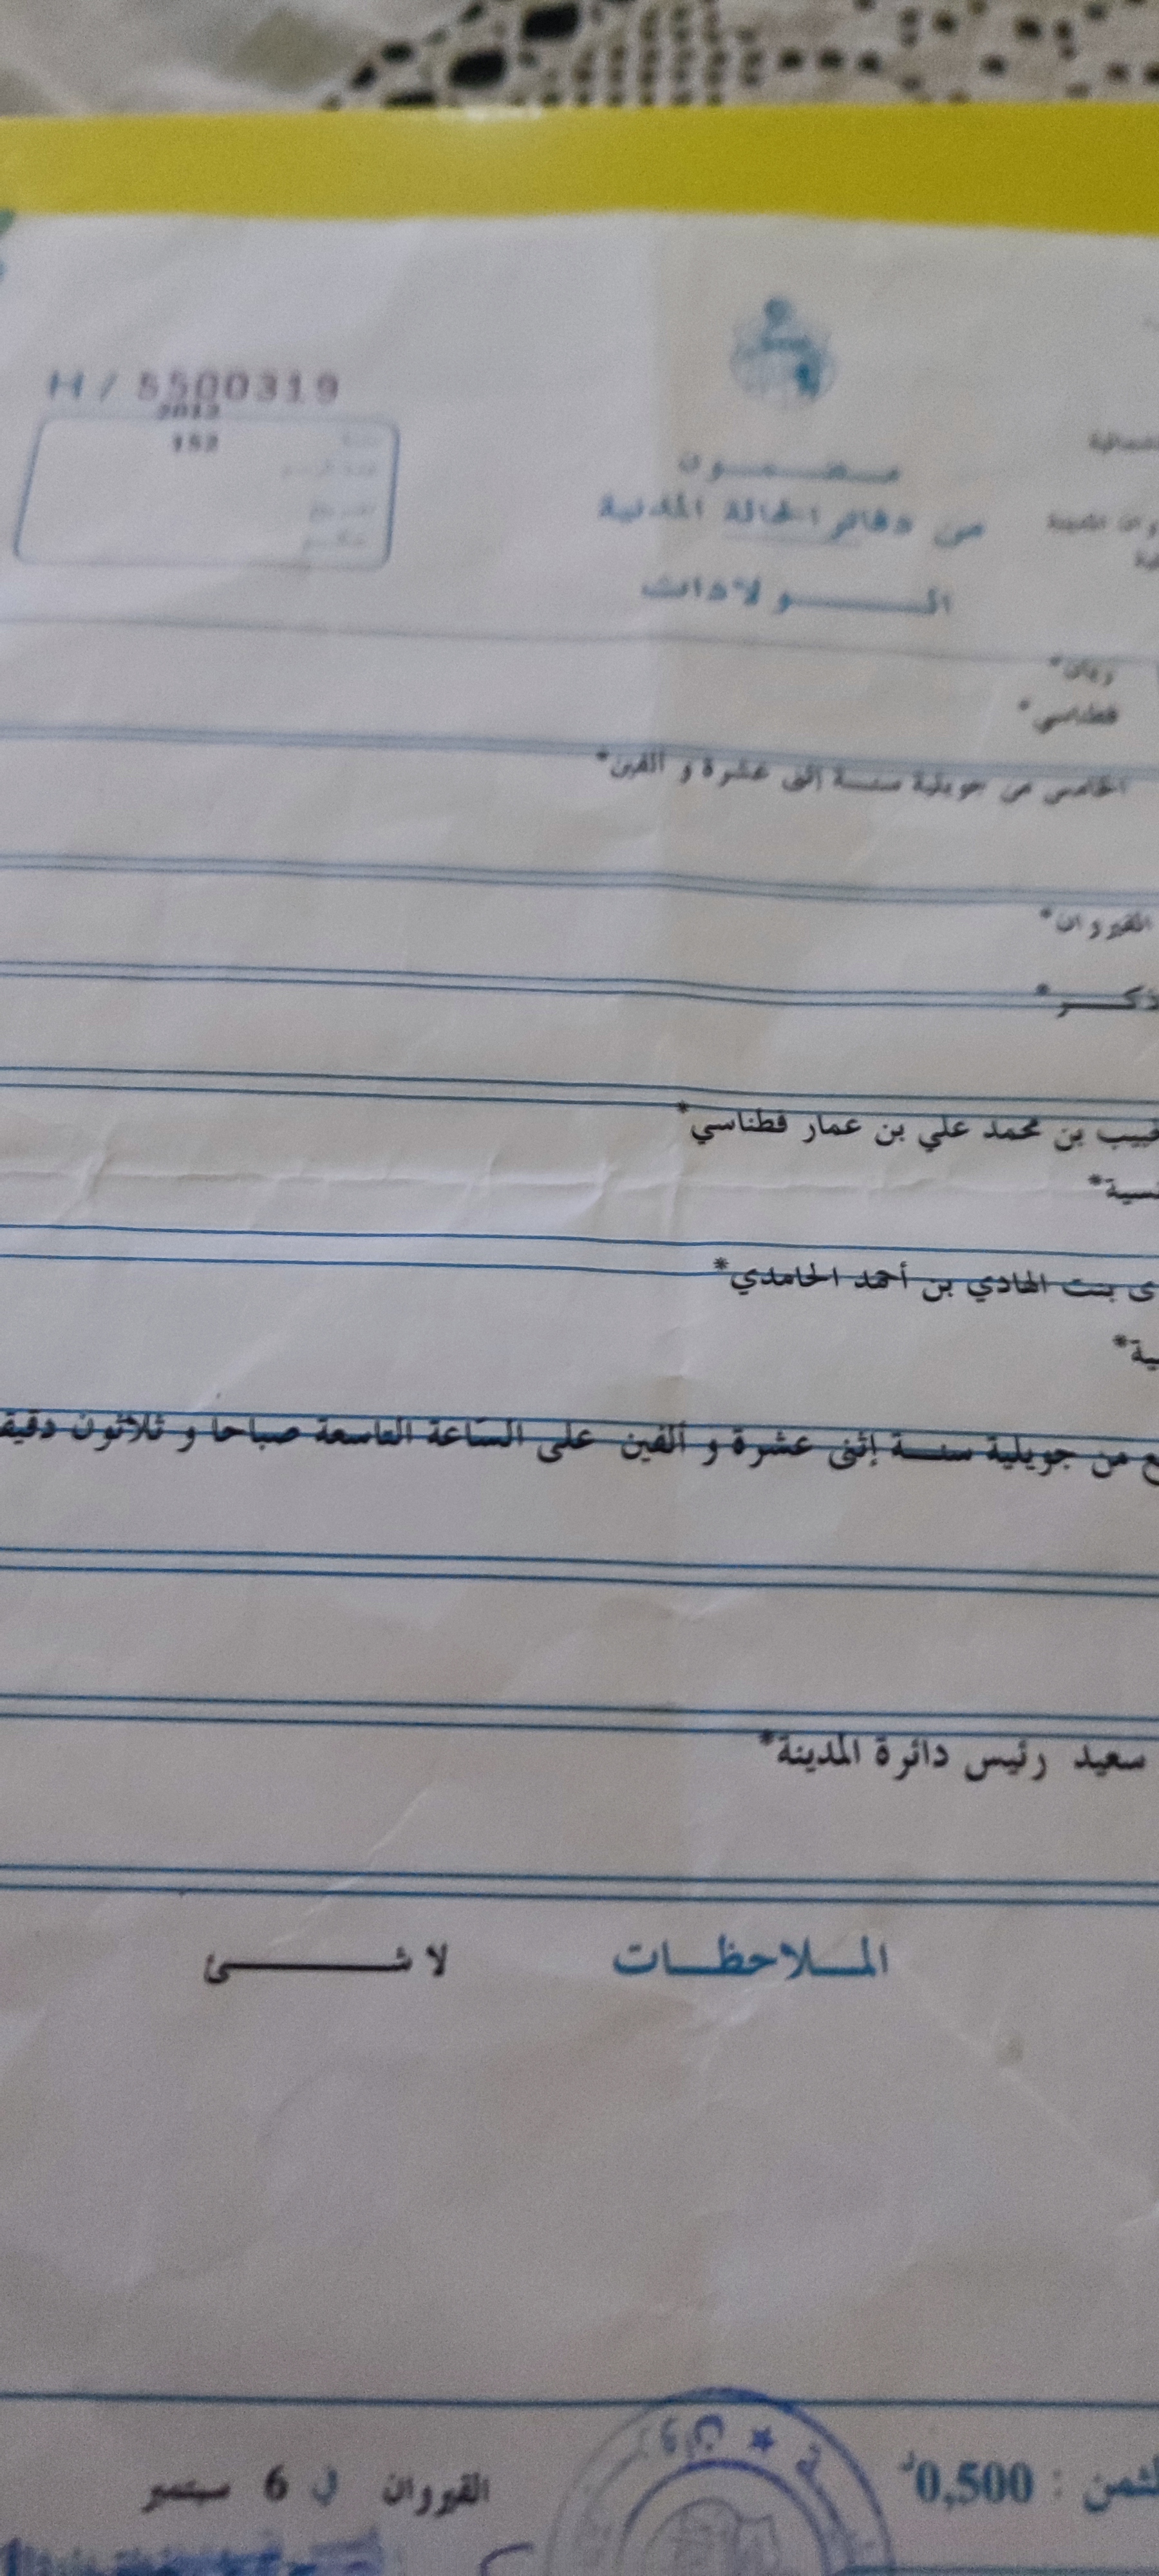 H / 5500319
2012
152
مضمون
من دفاتر الحالة المدنية
الولادات
ريان*
قطناسي*
الخامس من جويلية سنة إثنى عشرة و ألفين*
القيروان*
ذكر*
بن محمد علي بن عمار قطناسي*
بنت الهادي بن أحمد الحامدي*
من جويلية سنة إثنى عشرة و ألفين على الساعة التاسعة صباحا و ثلاثون
سعيد رئيس دائرة المدينة*
الملاحظات لا شئ
الثمن : 0,500د
القيروان في 6 سبتمبر